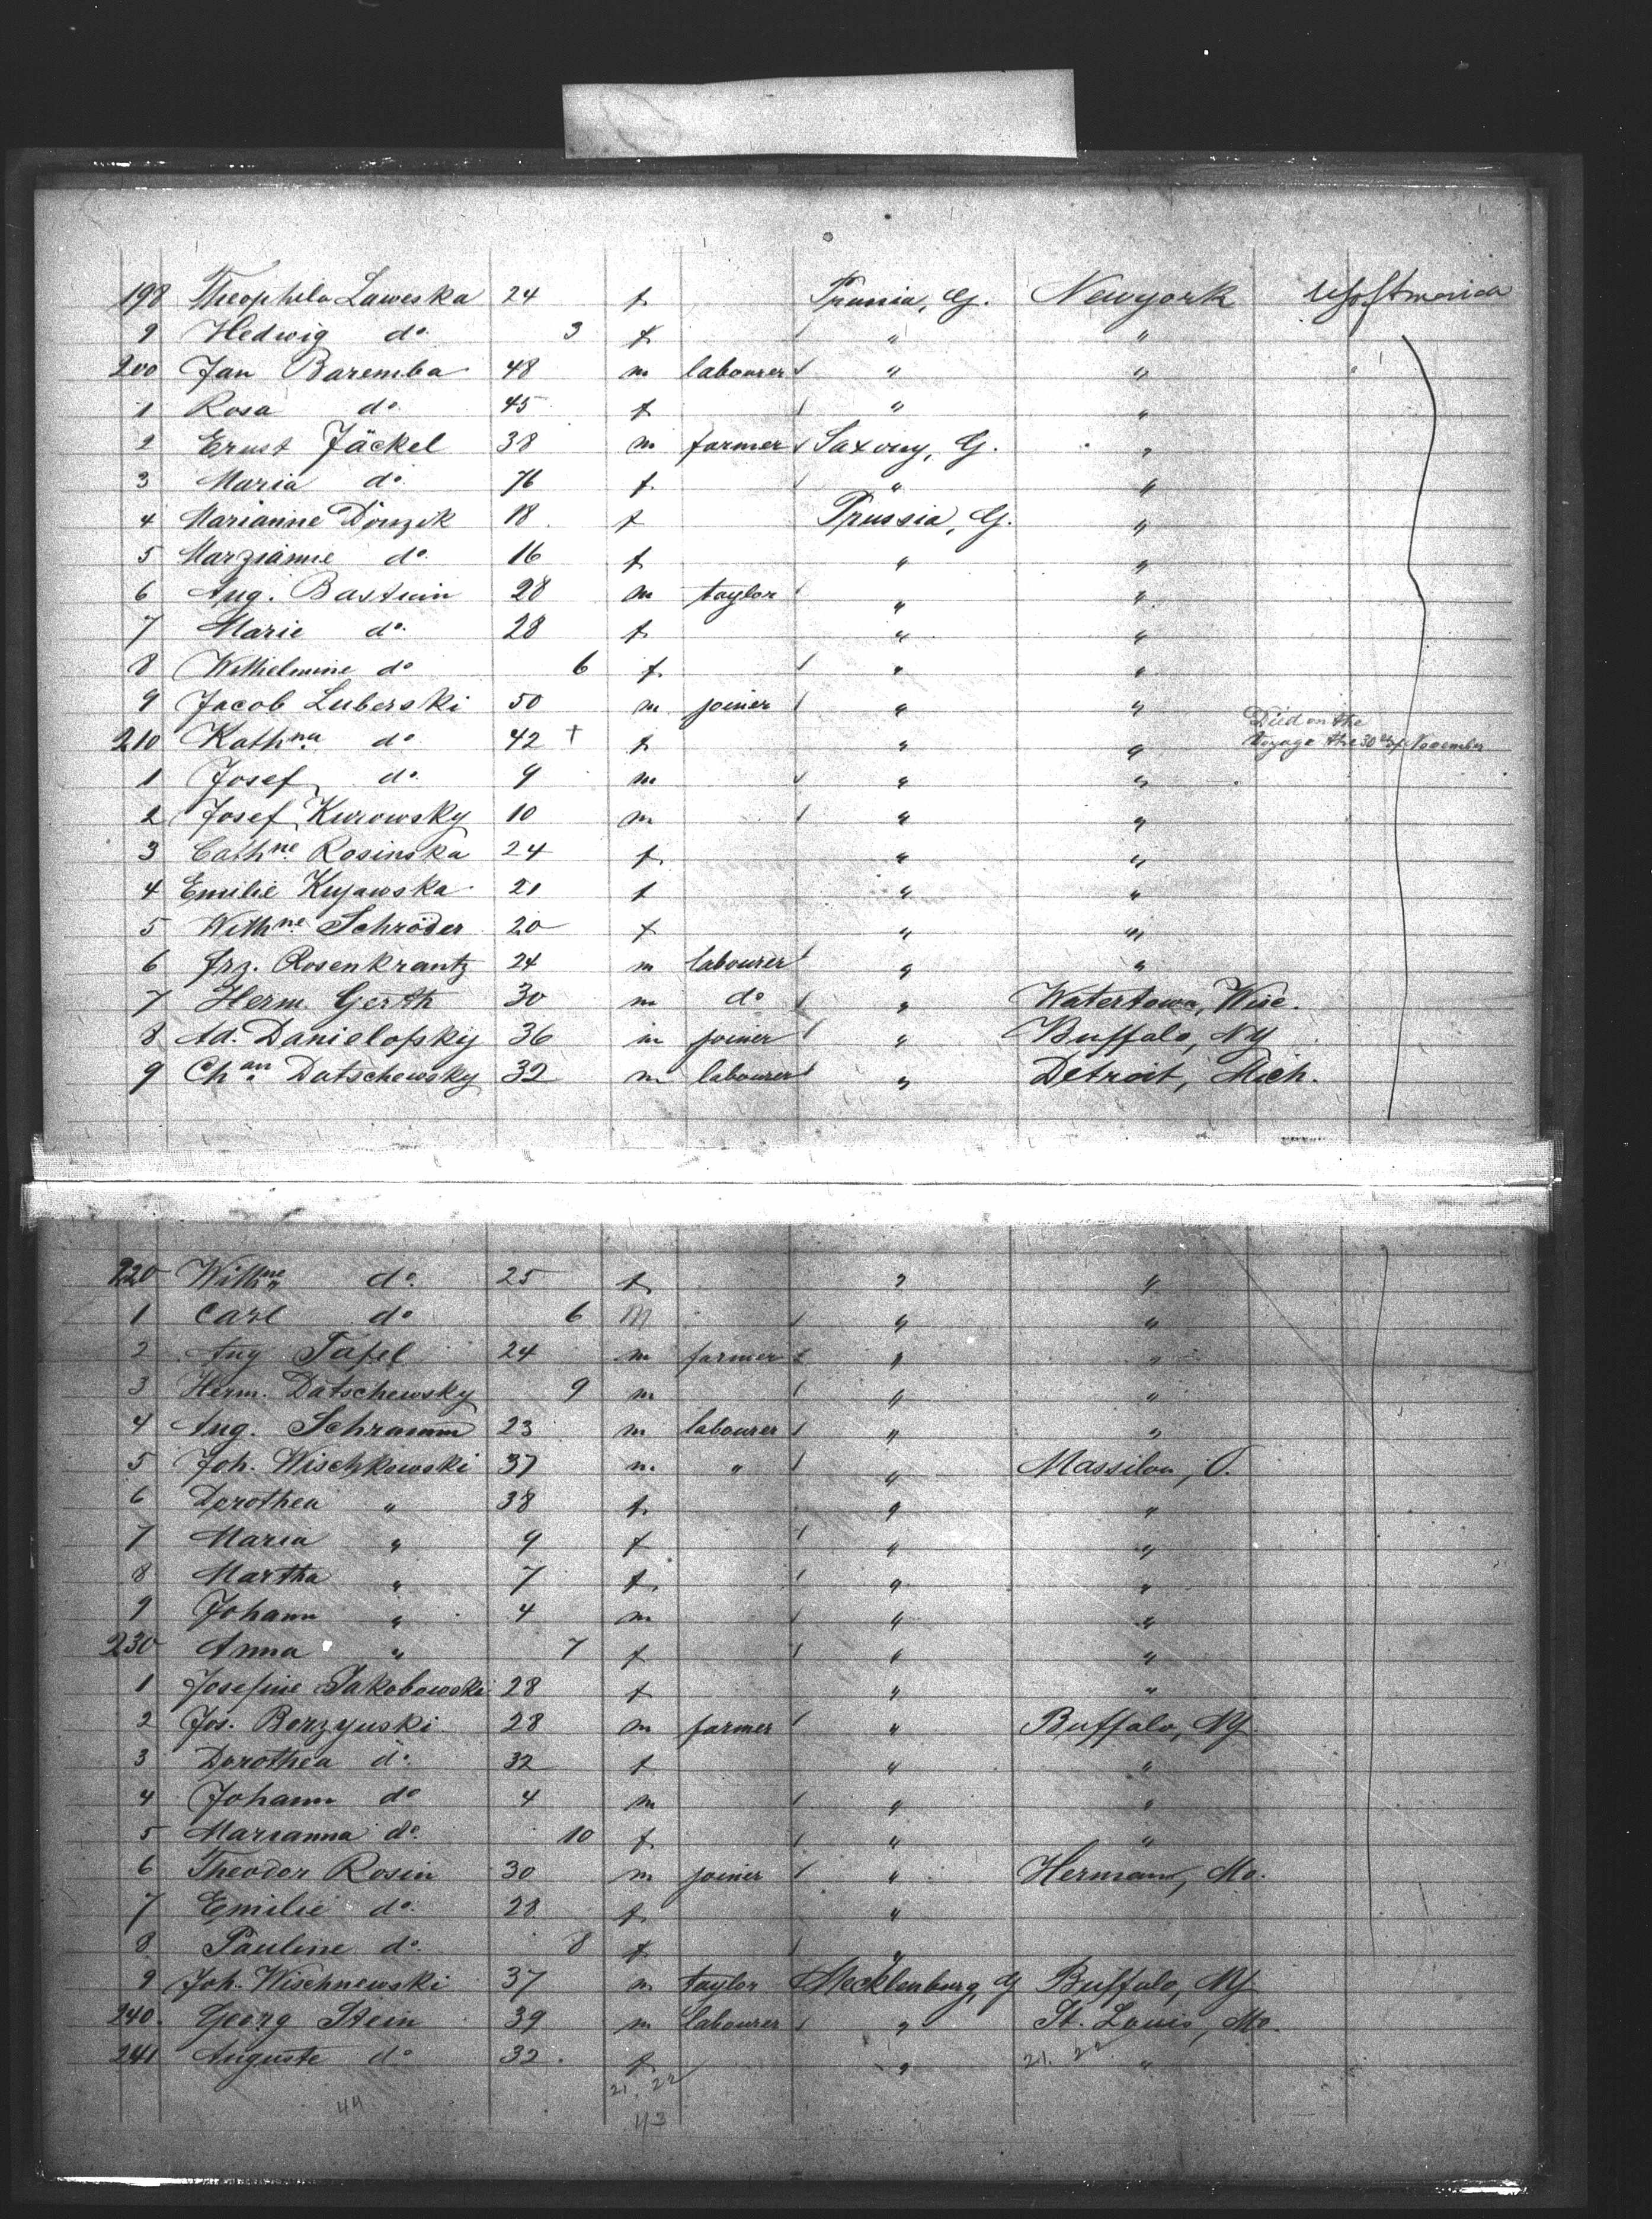 198 Theophila Laweska 24 f Prussia, G. Newyork U.S. of America
9 Hedwig do 3 f " "
200 Jan Baremba 48 m labourer " " "
1 Rosa do 45 f " "
2 Ernst Jäckel 38 m farmer Saxony, G. "
3 Maria do 76 f " "
4 Marianne Donzik 18 f Prussia, G. "
5 Marzianne do 16 f " "
6 Aug. Bastuin 28 m taylor " "
7 Marie do 28 f " "
8 Wilhelmine do 6 f " "
9 Jacob Luberski 50 m joiner " "
Died on the
210 Kathna do 42 + f " " Voyage the 30th of November
1 Josef do 9 m " "
2 Josef Kurowsky 10 m " "
3 Cathne Rosinska 24 f " "
4 Emilie Kujawska 21 f " "
5 Wilhne Schröder 20 f " "
6 Frz. Rosenkrantz 24 m labourer " "
7 Herm. Gerth 30 m do " Watertown, Wisc.
8 Ad. Danielofsky 36 m joiner " Buffalo, NY
9 Chan Datschewsky 32 m labourer " Detroit, Mich.
220 Wilhne do 25 f " "
1 Carl do 6 m " "
2 Aug Tafel 24 m farmer " "
3 Herm. Datschewsky 9 m " "
4 Aug. Schramm 23 m labourer " "
5 Joh. Wischkowski 37 m " " Massilon, O.
6 Dorothea " 38 f " "
7 Maria " 9 f " "
8 Martha " 7 f " "
9 Johann " 4 m " "
230 Anna " 7 f " "
1 Josefine Jakobowski 28 f " "
2 Jos. Borzyuski 28 m farmer " Buffalo, NY
3 Dorothea do 32 f " "
4 Johann do 4 m " "
5 Marianna do 10 f " "
6 Theodor Rosin 30 m joiner " Hermann, Mo.
7 Emilie do 28 f "
8 Pauline do 8 f "
9 Joh. Wischnewski 37 m taylor Mecklenburg, G Buffalo, NY
240 Georg Stein 39 m labourer " St. Louis, Mo.
241 Auguste do 32 f " "
21. 22
21. 22
44 43